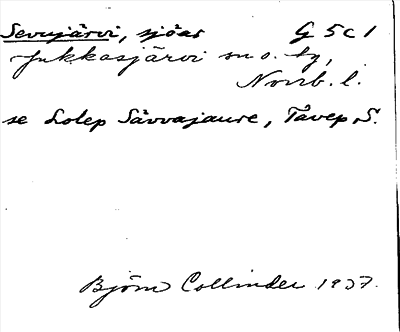 Sevujärvi, sjöar G 5 c 1
Jukkasjärvi sn o. tg,
Norrb. l.
se Lolep Sävvajaure, Tåvep S.
Björn Collinder 1937.